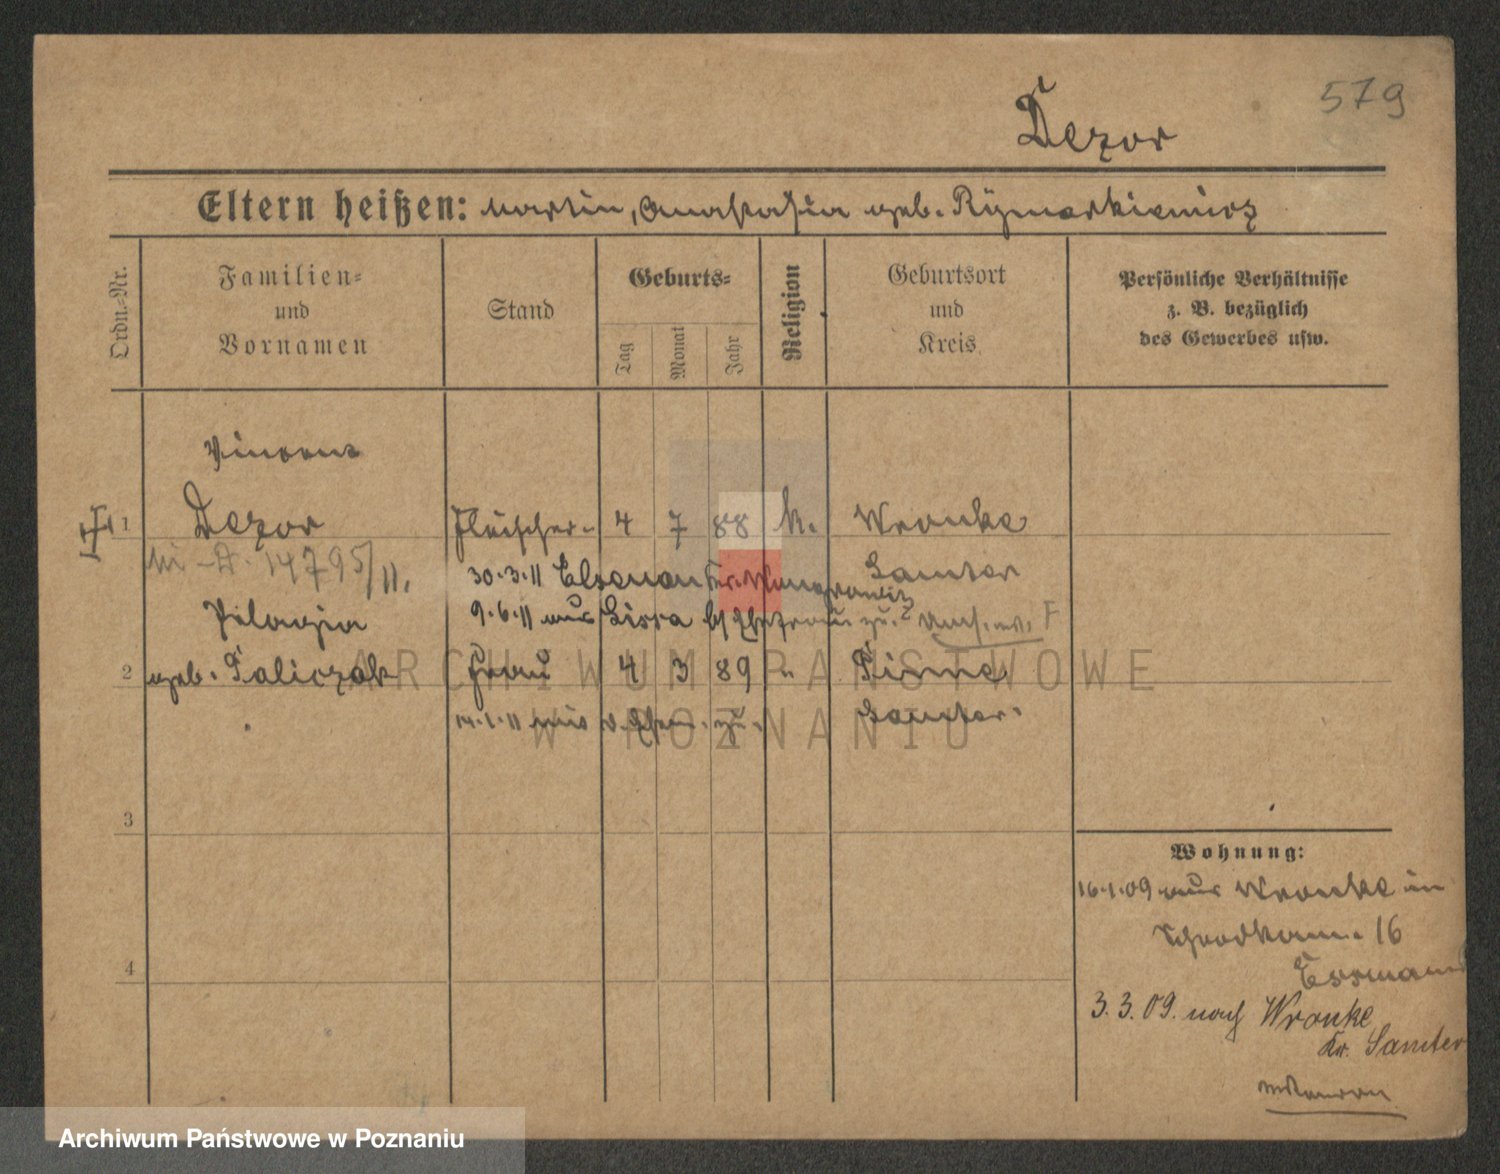 579
Dezor
Eltern heißen: Martin, Anastasia geb. Rizmarkiewicz
Ordn.-Nr.
Familien-
und
Vornamen
Stand
Geburts-
Tag
Monat
Jahr
Religion
Geburtsort
und
Kreis
Persönliche Verhältnisse
z. B. bezüglich
des Gewerbes usw.
Vincent
1 Dezor Fleischer. 4 7 88 k. Wronke
14795/11.
Samter
30.3.11 Elsenau Kr. Wongrowitz
9.6.11 aus Lissa
Pelagia
2 geb. Taliczak Frau 4 3 89 " Pinne
Samter.
14.1.11
3
4
Wohnung:
16.1.09 aus Wronke in
16
3.3.09. nach Wronke
Kr. Samter
ARCHIWUM PAŃSTWOWE
W POZNANIU
Archiwum Państwowe w Poznaniu